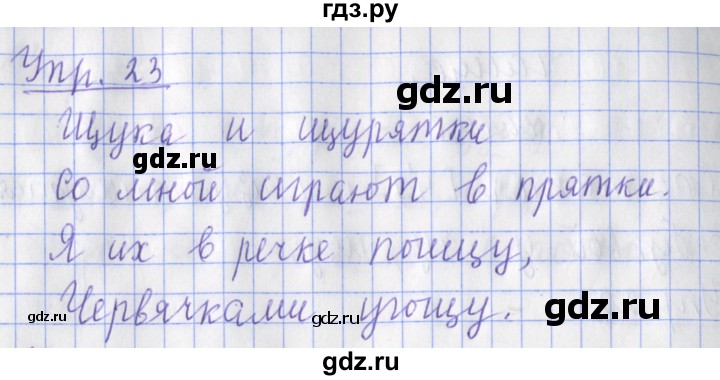 гдз.ру
Упр. 23
gdz.ru
Щука и щурятки
gdz.ru
gdz.ru
со мной играют в прятки.
Я их в речке поищу,
Червячками угощу.
gdz.ru
gdz.ru
gdz.ru
gdz.ru
gdz.ru